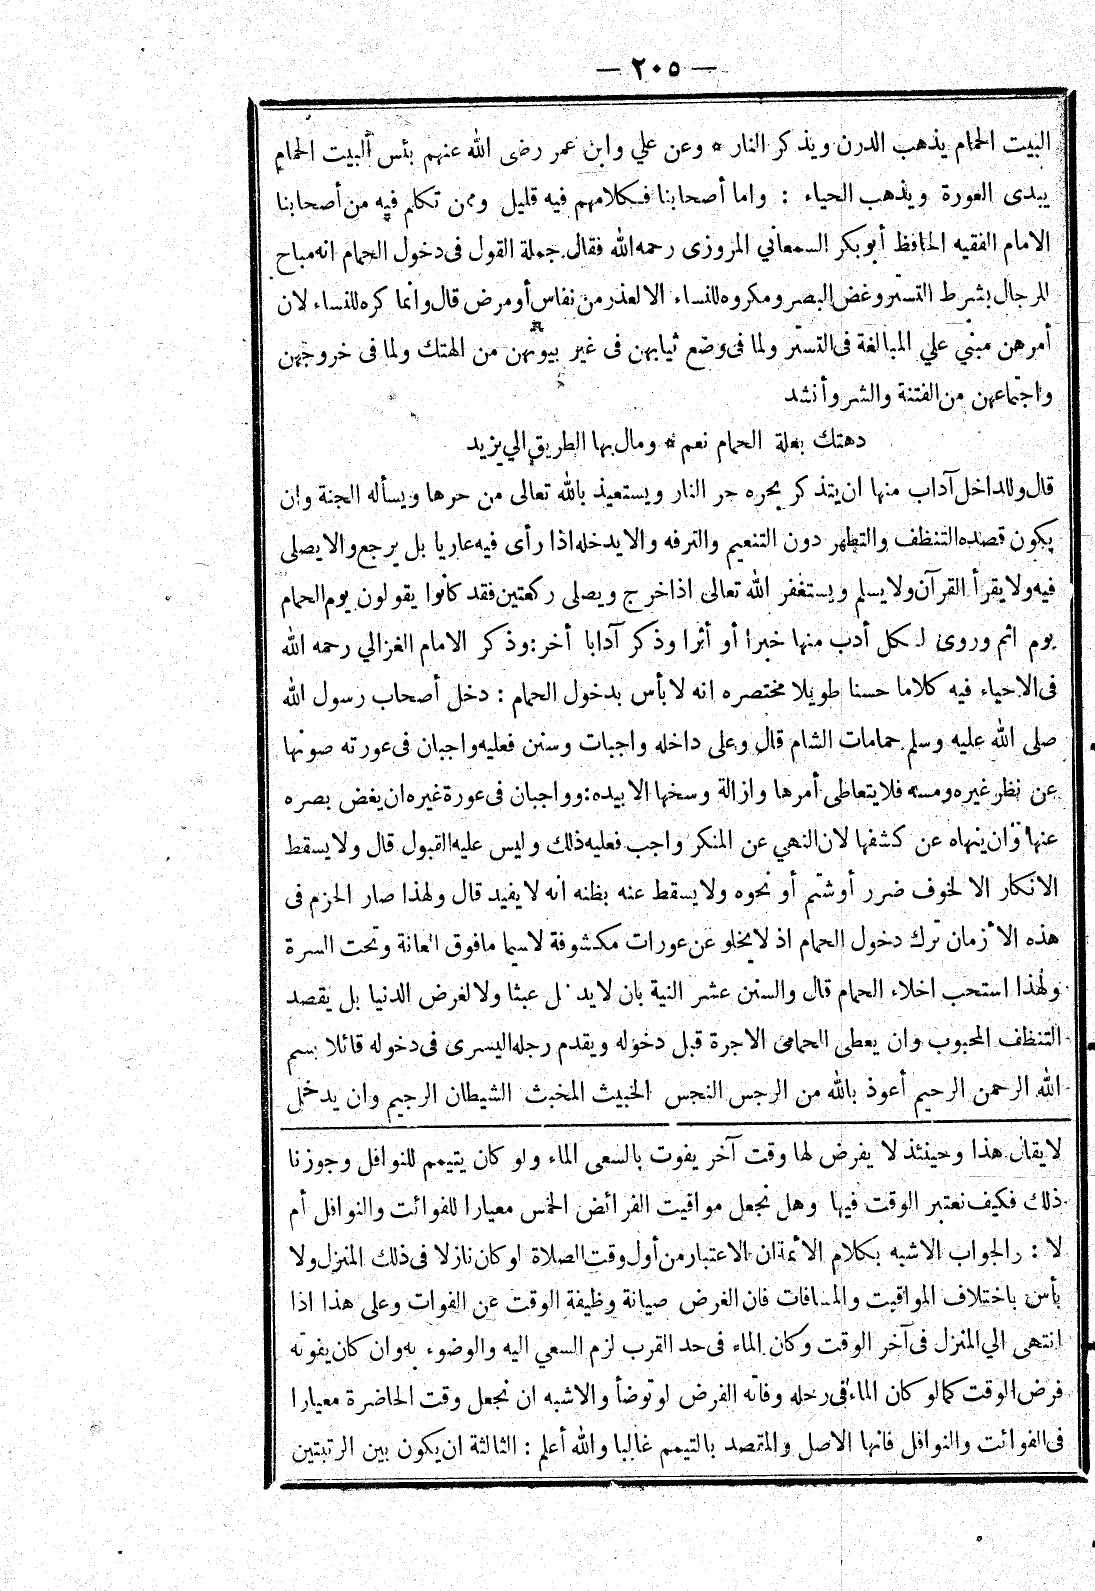 — ٢٠٥ —
البيت الحمام يذهب الدرن ويذكر النار * وعن علي وابن عمر رضى الله عنهم بئس البيت الحمام
يبدى العورة ويذهب الحياء : واما أصحابنا فكلامهم فيه قليل وممن تكلم فيه من أصحابنا
الامام الفقيه الحافظ أبو بكر السمعاني المروزى رحمه الله فقال جملة القول فى دخول الحمام انه مباح
للرجال بشرط التستر وغض البصر ومكروه للنساء الا لعذر من نفاس أو مرض قال وانما كره للنساء لان
أمرهن مبني علي المبالغة فى التستر ولما فى وضع ثيابهن فى غير بيوتهن من الهتك ولما فى خروجهن
واجتماعهن من الفتنة والشر وأنشد
دهتك بعلة الحمام نعم * ومال بها الطريق الي يزيد
قال وللداخل آداب منها ان يتذكر بحره حر النار ويستعيذ بالله تعالى من حرها ويسأله الجنة وان
يكون قصده التنظف والتطهر دون التنعيم والترفه والا يدخله اذا رأى فيه عاريا بل يرجع والا يصلى
فيه ولا يقرأ القرآن ولا يسلم ويستغفر الله تعالى اذا خرج ويصلى ركعتين فقد كانوا يقولون يوم الحمام
يوم اثم وروى لكل أدب منها خبرا أو أثرا وذكر آدابا أخر : وذكر الامام الغزالي رحمه الله
فى الاحياء فيه كلاما حسنا طويلا مختصره انه لا بأس بدخول الحمام : دخل أصحاب رسول الله
صلى الله عليه وسلم حمامات الشام قال وعلى داخله واجبات وسنن فعليه واجبان فى عورته صونها
عن نظر غيره ومسه فلا يتعاطى أمرها وازالة وسخها الا بيده : وواجبان فى عورة غيره ان يغض بصره
عنها وان ينهاه عن كشفها لان النهي عن المنكر واجب فعليه ذلك وليس عليه القبول قال ولا يسقط
الانكار الا لخوف ضرر أو شتم أو نحوه ولا يسقط عنه بظنه انه لا يفيد قال ولهذا صار الحزم فى
هذه الأزمان ترك دخول الحمام اذ لا يخلو عن عورات مكشوفة لاسيما ما فوق العانة وتحت السرة
ولهذا استحب اخلاء الحمام قال والسنن عشر النية بان لا يدخل عبثا ولا لغرض الدنيا بل يقصد
التنظف المحبوب وان يعطى الحمامى الاجرة قبل دخوله ويقدم رجله اليسرى فى دخوله قائلا بسم
الله الرحمن الرحيم أعوذ بالله من الرجس النجس الخبيث المخبث الشيطان الرجيم وان يدخل
لا يقال هذا وحينئذ لا يفرض لها وقت آخر يفوت بالسعى الماء ولو كان يتيمم للنوافل وجوزنا
ذلك فكيف نعتبر الوقت فيها وهل نجعل مواقيت الفرائض الخمس معيارا للفوائت والنوافل أم
لا : والجواب الاشبه بكلام الائمة ان الاعتبار من أول وقت الصلاة لو كان نازلا فى ذلك المنزل ولا
بأس باختلاف المواقيت والمسافات فان الغرض صيانة وظيفة الوقت عن الفوات وعلى هذا اذا
انتهى الي المنزل فى آخر الوقت وكان الماء فى حد القرب لزم السعي اليه والوضوء به وان كان يفوته
فرض الوقت كما لو كان الماء فى رحله وفاته الفرض لو توضأ والاشبه ان نجعل وقت الحاضرة معيارا
فى الفوائت والنوافل فانها الاصل والمقصد بالتيمم غالبا والله أعلم : الثالثة ان يكون بين الرتبتين